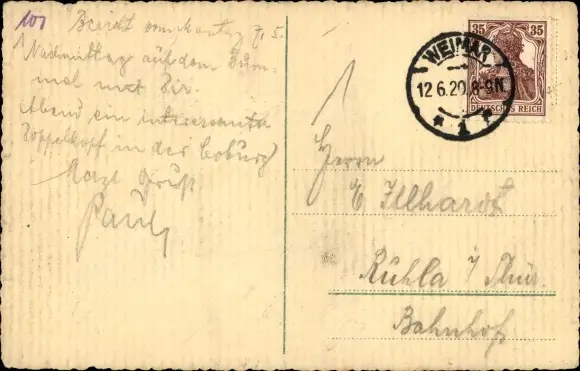 101
Bericht vom Montag 7.5.
Nachmittags auf dem Bum-
mel mit Dir.
Abend ein interessanter
Doppelkopf in der Coburg
Herzl Gruß
Paul
WEIMAR
12.6.20.8-9N.
* 1 *
35 35
DEUTSCHES REICH
Herrn
E Illhardt
Ruhla i/ Thür.
Bahnhof